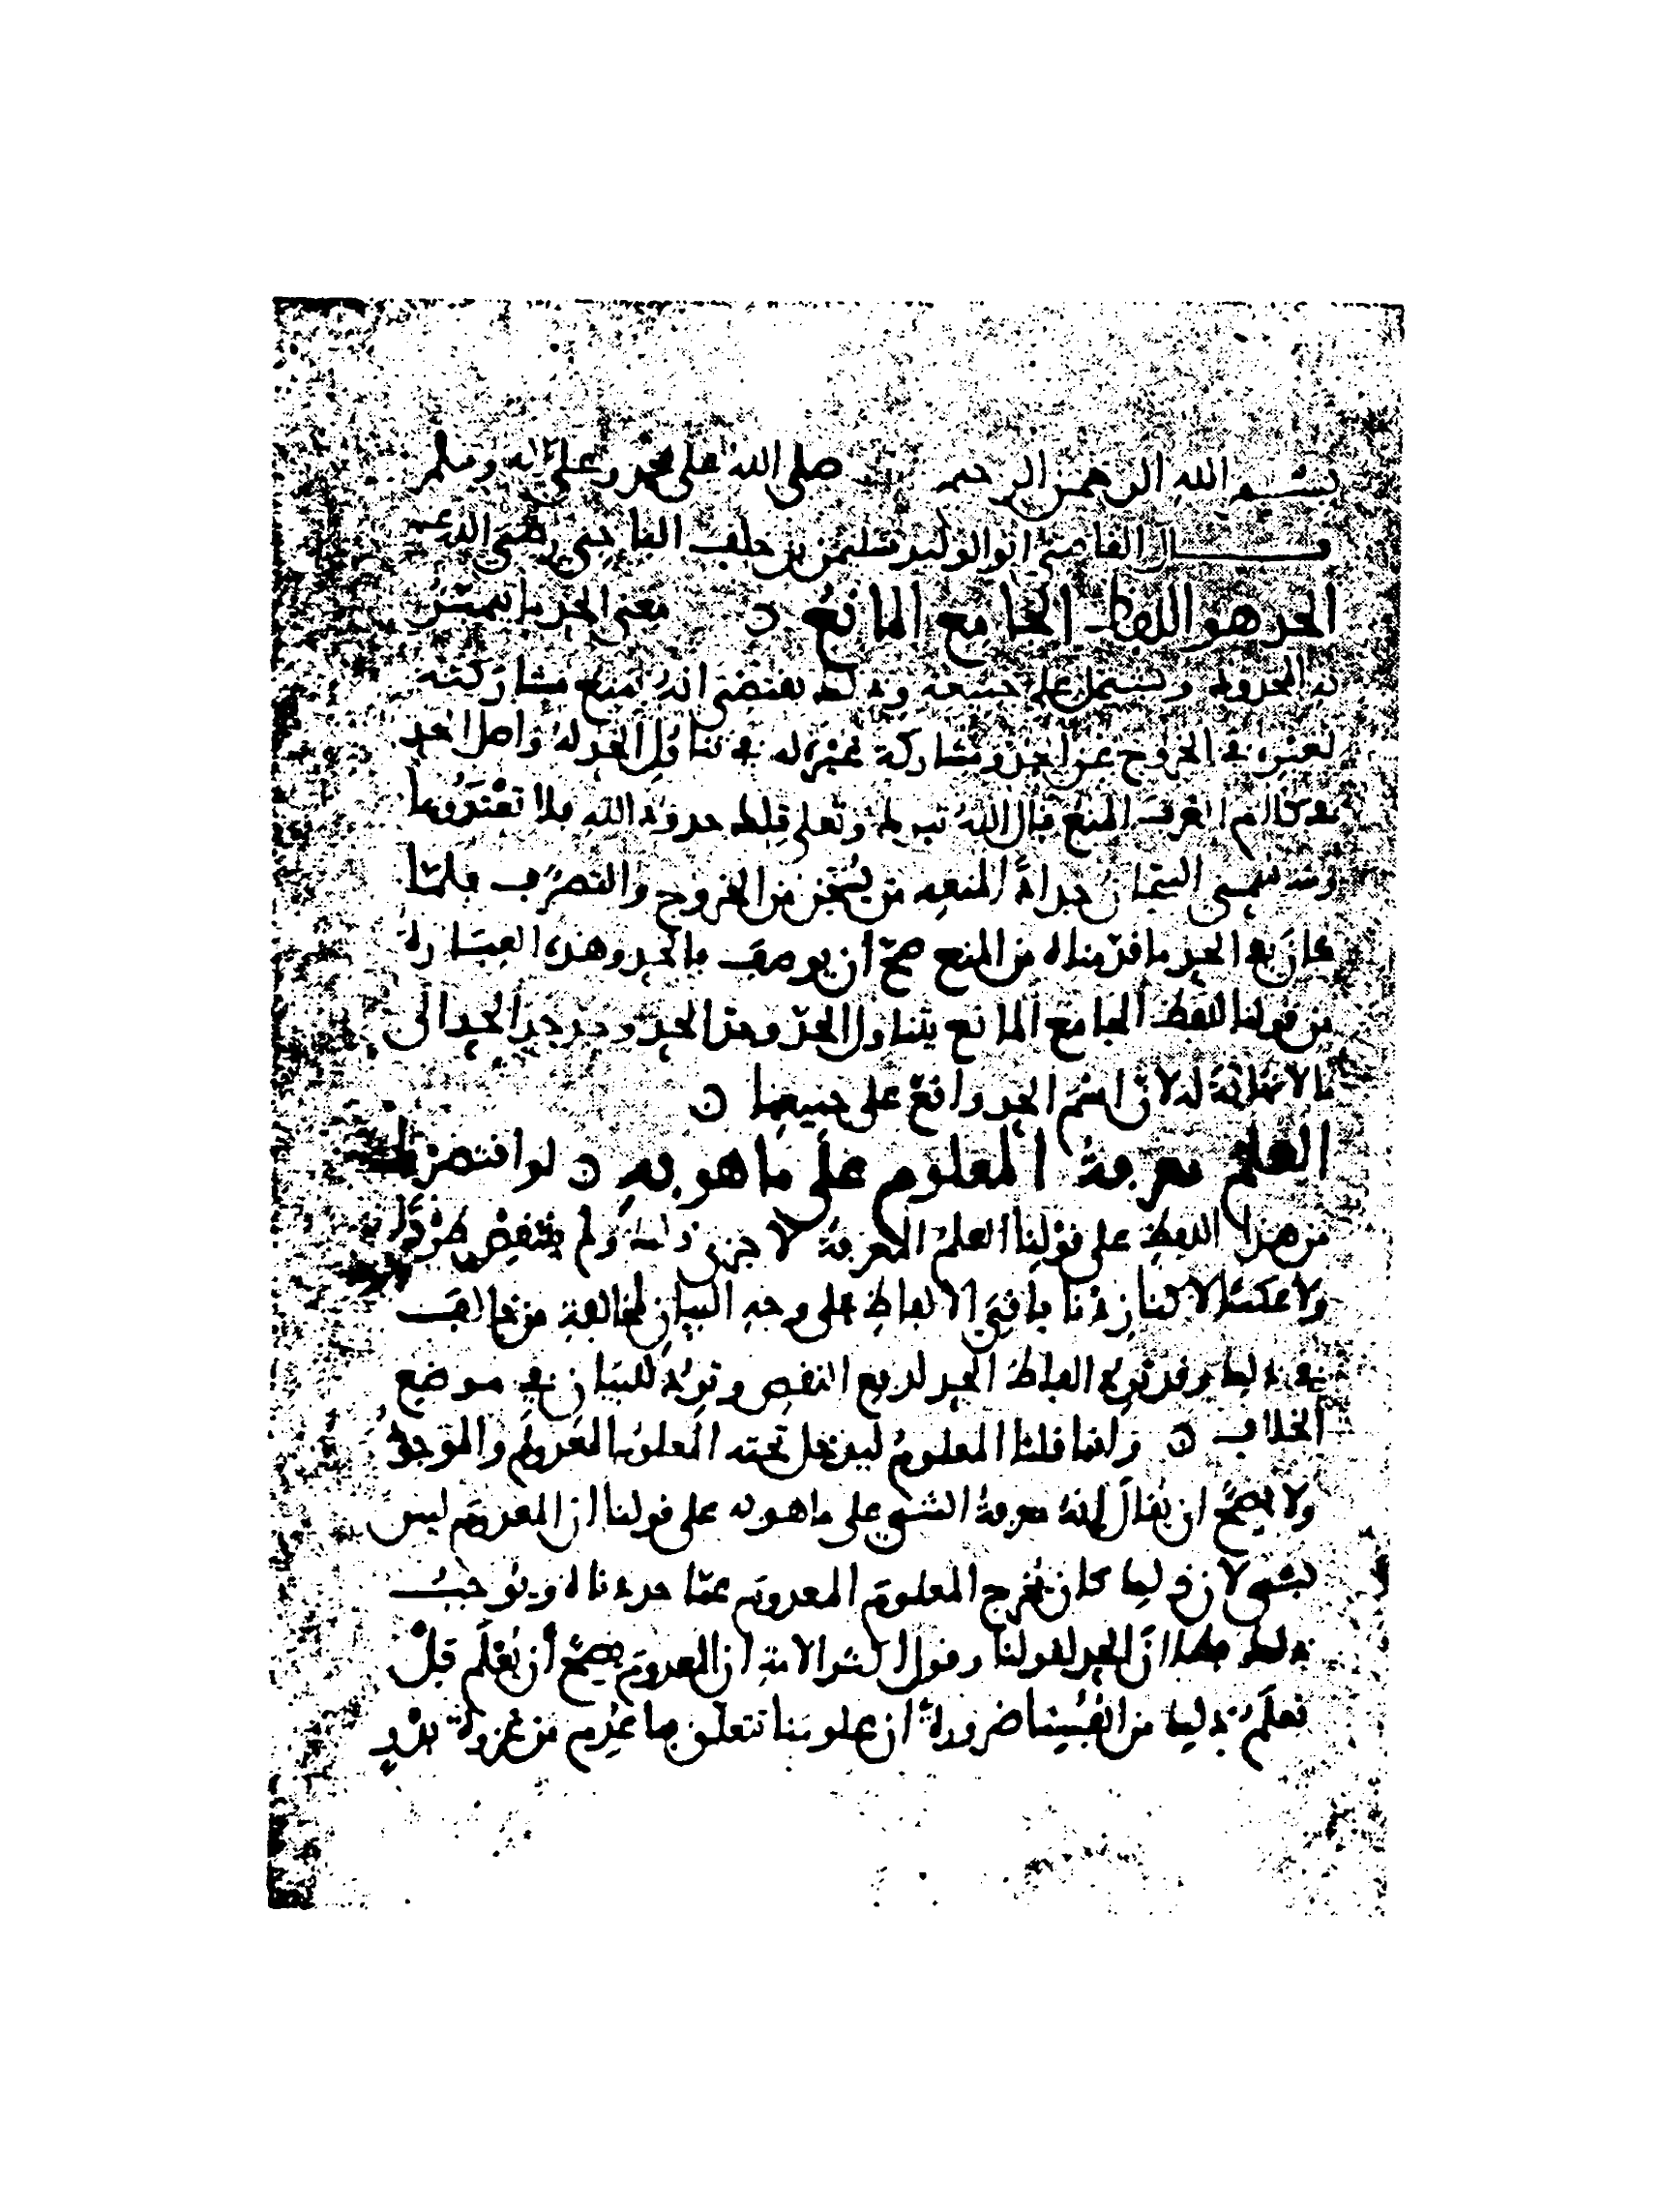 بسم الله الرحمن الرحيم صلى الله على محمد وعلى اله وسلم
قال القاضي ابو الوليد سليمن بن خلف الباجي رضي الله عنه
الحد هو اللفظ الجامع المانع معنى الحد ما يتميز
به المحدود ويشتمل على جميعه وذلك يقتضي انه يمنع مشاركته
لغيره في الخروج عن الحد ومشاركة غيره له في تناول الحد له واصل الحد
في كلام العرب المنع قال الله تبرك وتعلى تلك حدود الله فلا تعتدوها
السجان حدادا لمنعه من يسجن من الخروج والتصرف فلما
كان في الحد ما قدمناه من المنع صح ان يوصف بالحد وهذه العبارة
من قولنا اللفظ الجامع المانع يتناول الحد وحد الحد وحد حد الحد الى
ما لا نهاية له لان اسم الحد واقع على جميعها
العلم معرفة المعلوم على ما هو به لو اقتصرنا
من هذا اللفظ على قولنا العلم المعرفة لاجزى ذلك ولم ينتقض طردا
ولا عكسا لاكننا زدنا باقي الالفاظ على وجه البيان لمخالفة من خالف
في ذلك وقد تورد الفاظ الحد لدفع النقض وترد للبيان في موضع
الخلاف وانما قلنا المعلوم ليدخل تحته المعلوم المعدوم والموجود
ولا يصح ان يقال انه معرفة الشيء على ما هو به على قولنا ان المعدوم ليس
بشيء لان ذلك كان يخرج المعلوم المعدوم عما حددناه ويوجب
ذلك الحد لقولنا وقول اكثر الامة ان المعدوم يصح ان يعلم قبل
نعلم ذلك من انفسنا ضرورة ان علومنا تتعلق بما عدم من غزوة بدر